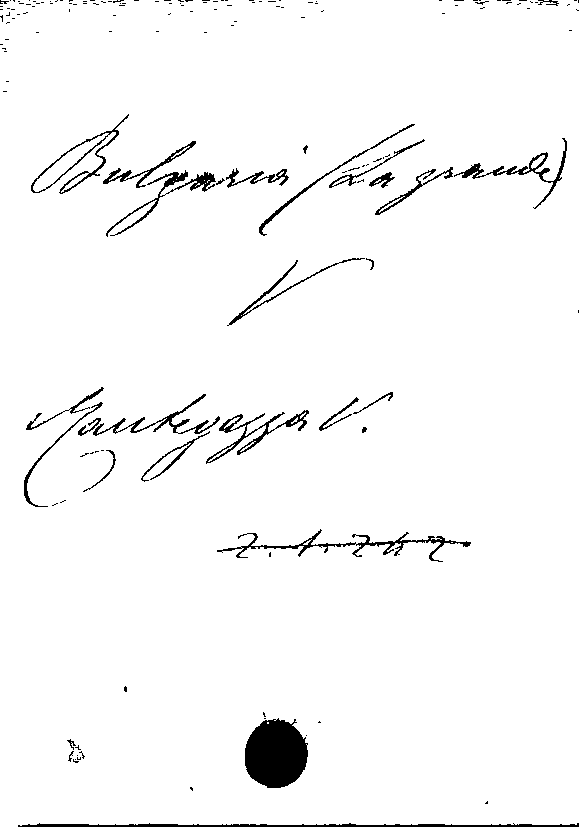 Bulgaria (La grande)
V
Mantegazza V.
2.A.242